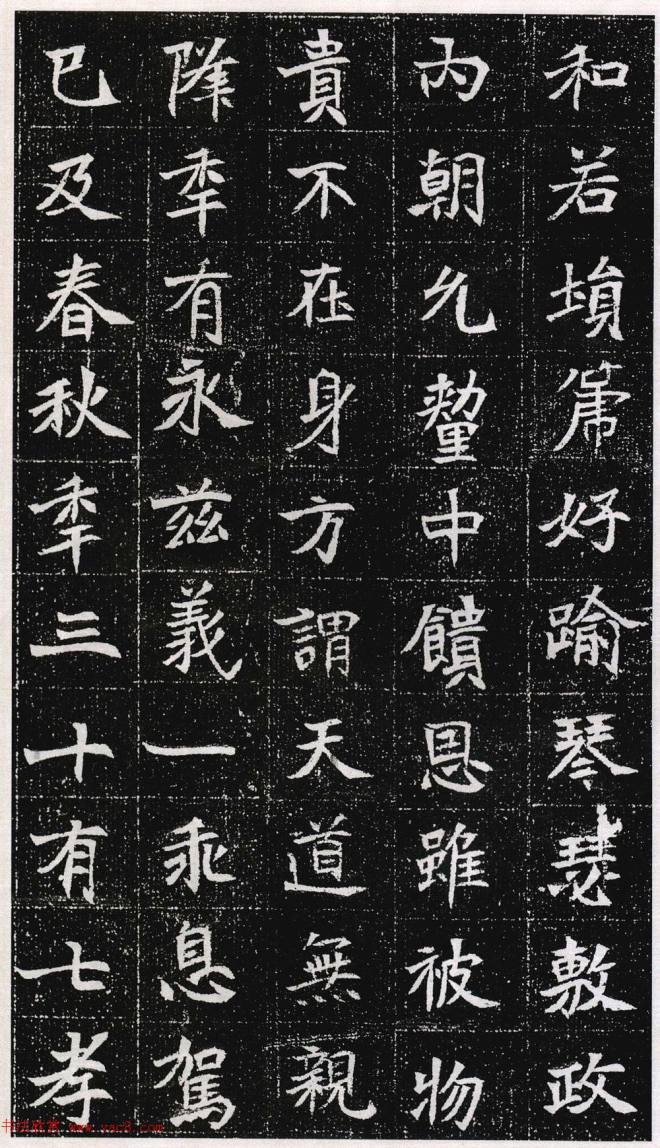 和若塤篪好踰琴瑟敷政
內朝允釐中饋恩雖被物
貴不在身方謂天道無親
降年有永兹義一乖息駕
已及春秋年三十有七孝
书法欣赏 www.yac8.com